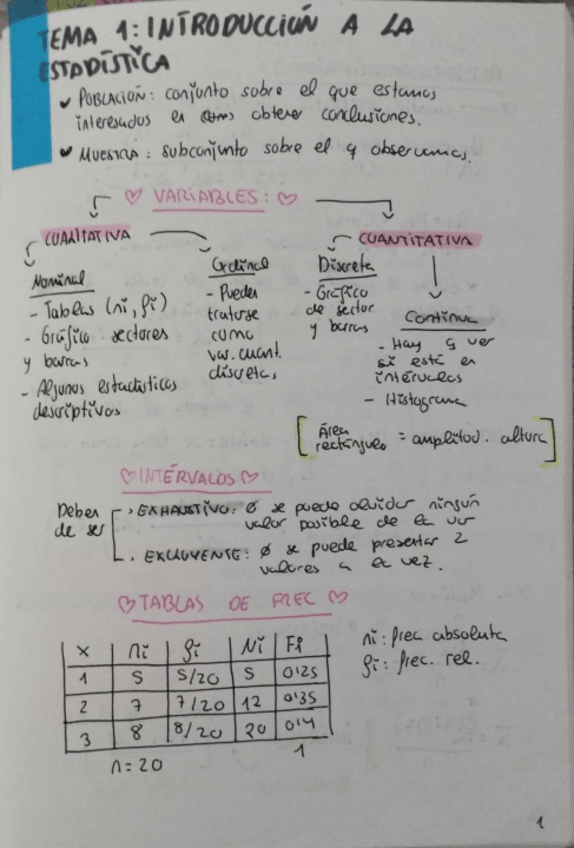 TEMA 1: INTRODUCCIÓN A LA
ESTADÍSTICA
✓ POBLACIÓN: conjunto sobre el que estamos
interesados en obtener conclusiones.
✓ MUESTRA: subconjunto sobre el q observamos.
♡ VARIABLES: ♡
CUALITATIVA
Nominal
- Tablas (ni, fi)
- Gráfico sectores
y barras
- Algunos estadísticos
descriptivos
Ordinal
- Pueden
tratarse
como
var. cuant.
discretas
CUANTITATIVA
Discreta
- Gráfico
de sector
y barras
Continua
- Hay q ver
si está en
intérvalos
- Histograma
[Área rectángulo = amplitud . altura]
♡ INTÉRVALOS ♡
Deben
de ser
· EXHAUSTIVO: ∅ se puede olvidar ningún
valor posible de la var
· EXCLUYENSE: ∅ se puede presentar 2
valores a la vez.
♡ TABLAS DE FREC ♡
x | ni | fi | Ni | Fi
1 | 5 | 5/20 | 5 | 0'25
2 | 7 | 7/20 | 12 | 0'35
3 | 8 | 8/20 | 20 | 0'4
1
n=20
ni: frec absoluta
fi: frec. rel.
1